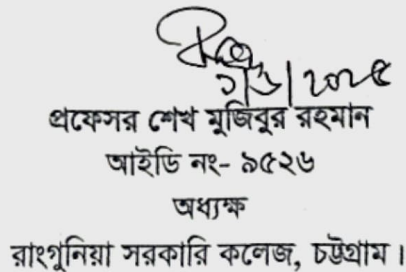 প্রফেসর শেখ মুজিবুর রহমান
আইডি নং- ৯৫২৬
অধ্যক্ষ
রাংগুনিয়া সরকারি কলেজ, চট্টগ্রাম।